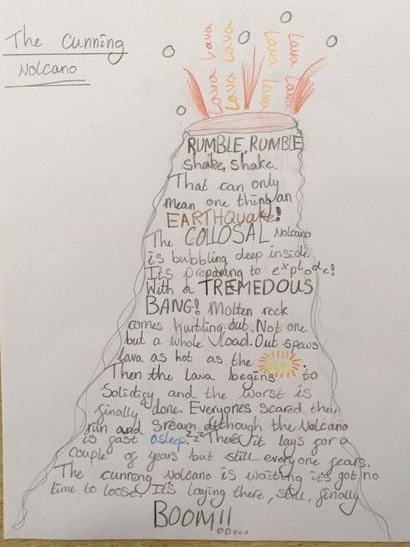 The Cunning
Volcano
Lava Lava Lava Lava
Lava Lava Lava Lava
RUMBLE, RUMBLE
shake, shake.
That can only
mean one thing an
EARTHQuake!
The COLLOSAL Volcano
is bubbling deep inside.
Its preparing to explode!
With a TREMEDOUS
BANG! Molten rock
comes hurtling out. Not one
but a whole load. Out spews
lava as hot as the
Then the lava begins to
Solidify and the worst is
finally done. Everyones scared they
run and sream although the Volcano
is fast asleep. zzz There it lays for a
couple of years but still everyone fears.
The cunning volcano is waiting its got no
time to loose. It's laying there, still, finally
BOOM!!